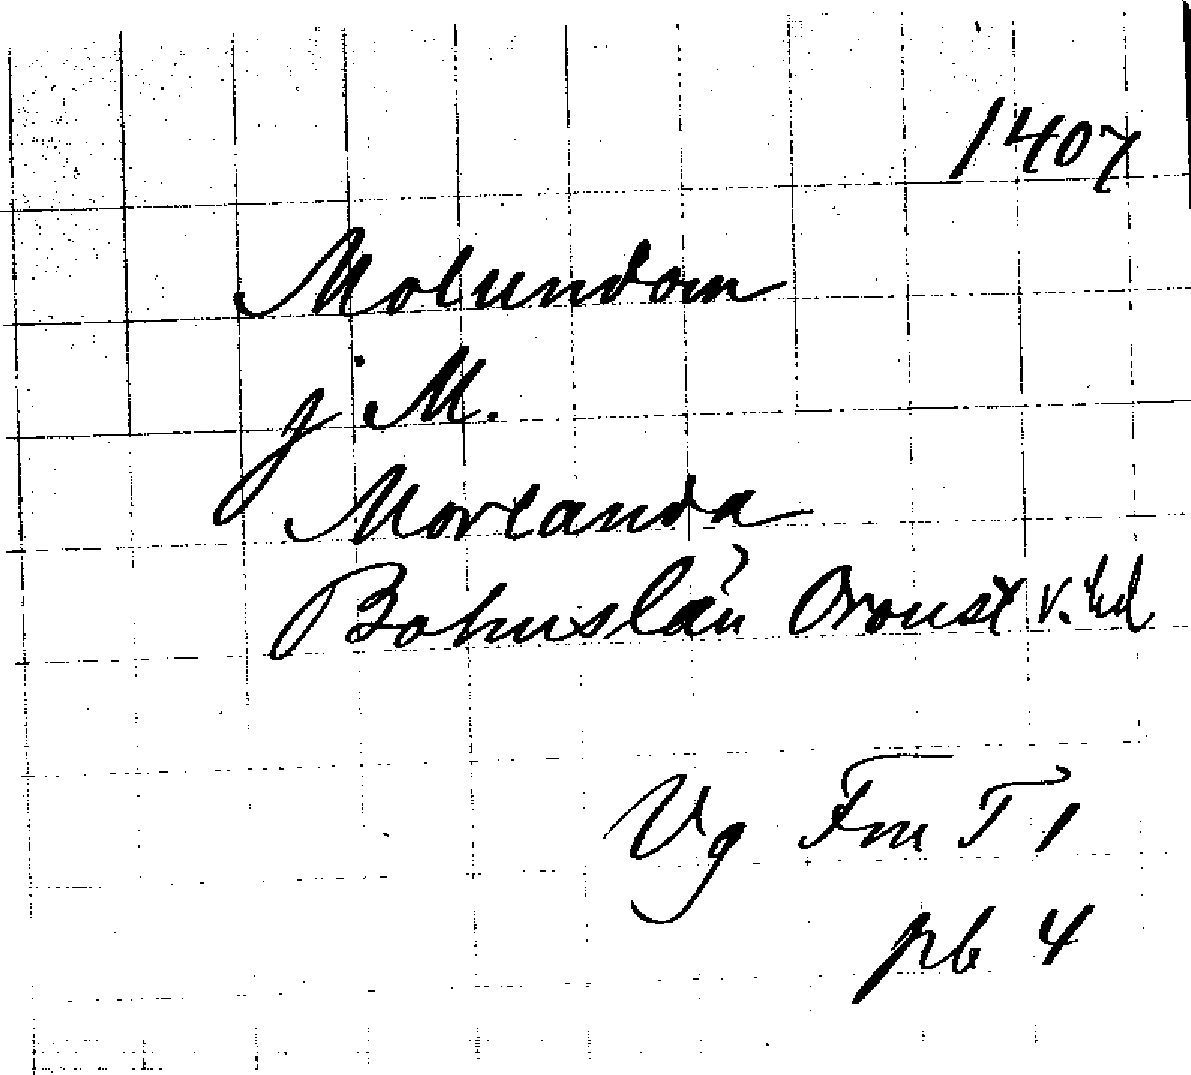 1407
Molundom
j M.
Morlanda
Bohuslän Oroust v. hd
Vg Fm T 1
pb 4